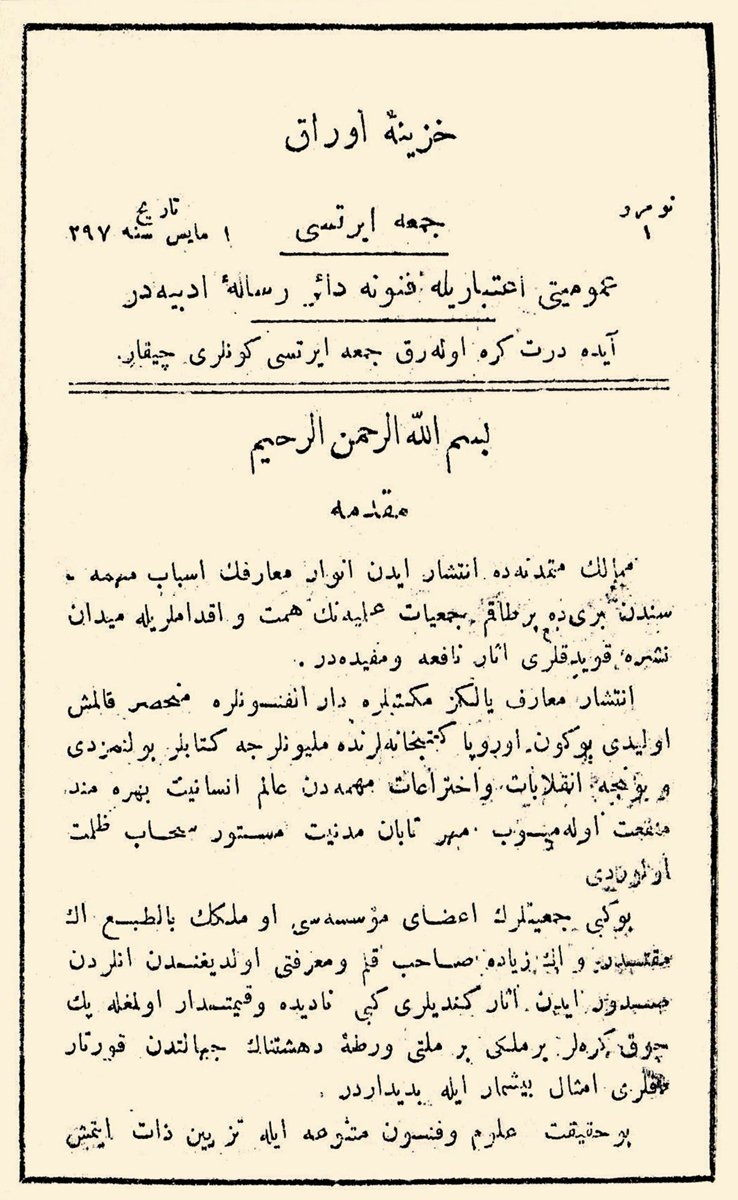 خزینهٔ اوراق
نومرو
۱
جمعه ایرتسی
تاریخ
۱ مایس سنه ۲۹۷
عمومیتی اعتباریله فنونه دائر رسالهٔ ادبیه‌در
آیده درت کره اوله‌رق جمعه ایرتسی کونلری چیقار.
بسم الله الرحمن الرحیم
مقدمه
ممالك متمدنه‌ده انتشار ایدن انوار معارفك اسباب مهمه ـ
سندن بری‌ده برطاقم جمعیات علیه‌نك همت و اقداملریله میدان
نشره قویدقلری اثار نافعه ومفیده‌در .
انتشار معارف یالکز مکتبلره دار الفنــونلره منحصر قالمش
اولیدی بوکون اوروپا کتبخانه‌لرنده ملیونلرجه کتابلر بولنمزدی
و بونجه انقلابات واختراعات مهمه‌دن عالم انسانیت بهره مند
منفعت اوله‌میــوب مهر تابان مدنیت مستور سحاب ظلمت
اولوردی
بوکبی جمعیتلرك اعضای مؤسسه‌سی او ملکك بالطبــع اك
مقتــدر و اك زیاده صــاحب قلم ومعرفتی اولدیغنــدن انلردن
صــدور ایدن اثار کندیلری کبی نادیده وقیمتــدار اولمغله پك
چوق کره‌لر برملکی بر ملتی ورطهٔ دهشتناك جهالتدن قورتار
دقلری امثال بیشمار ایله بدیداردر .
بوحقیقت علوم وفنــون متنوعه ایله تزیین ذات ایتمش